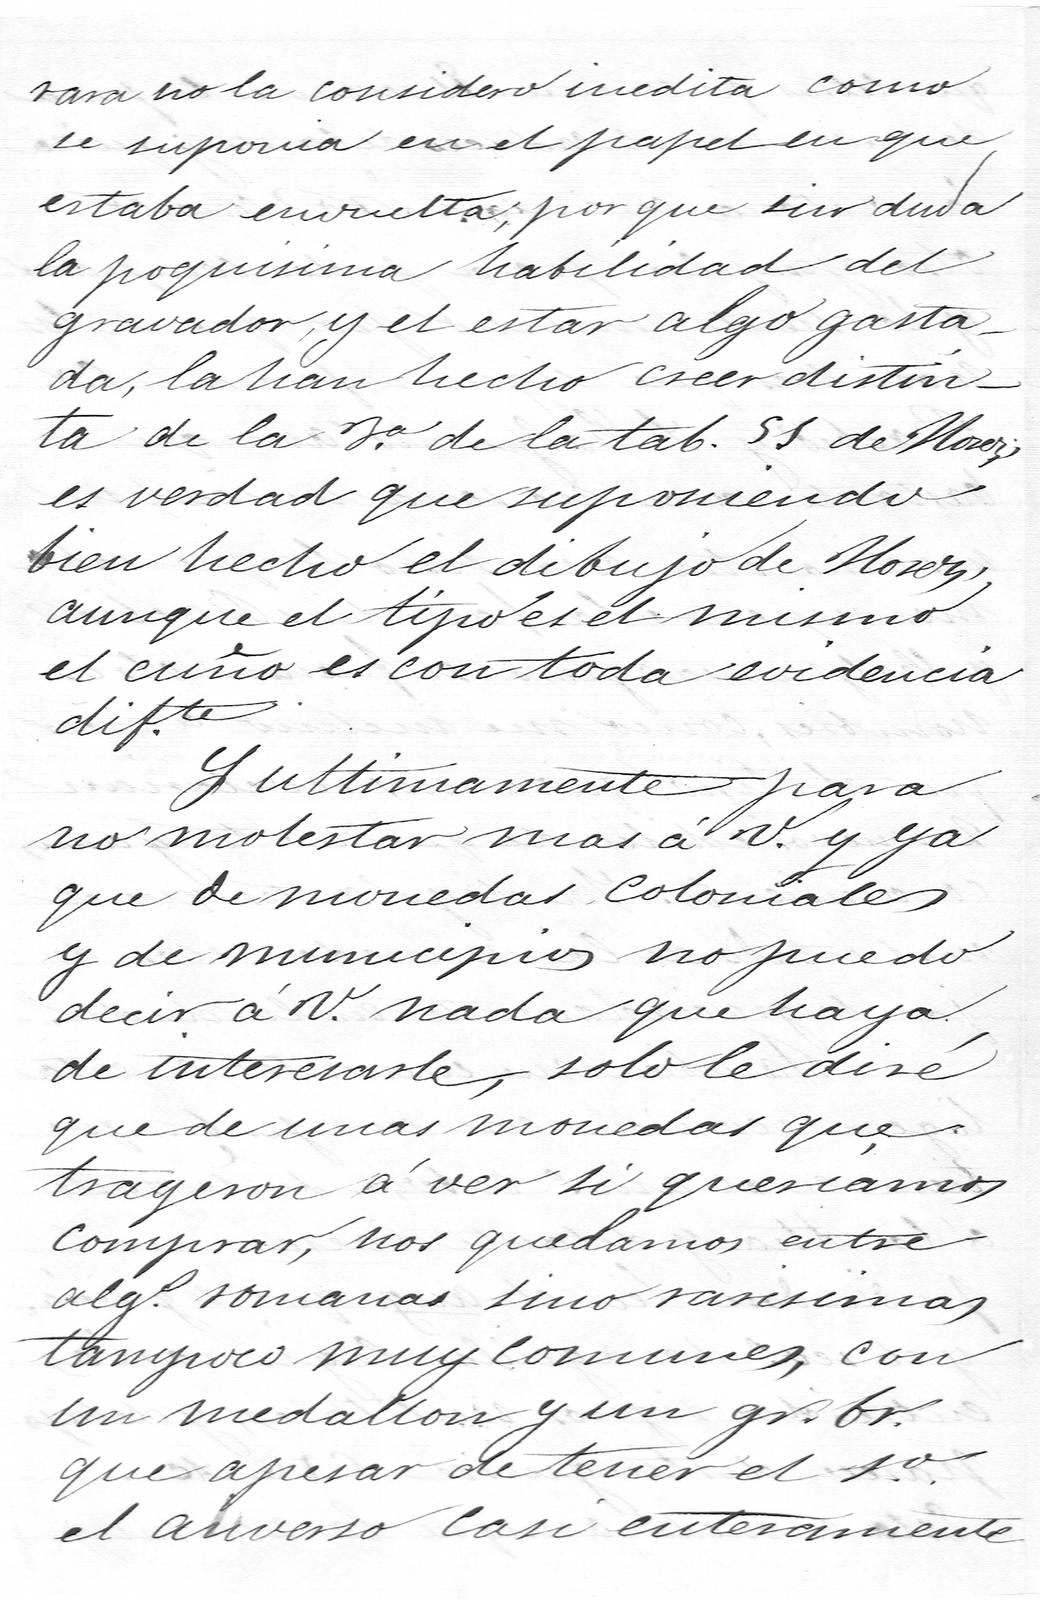 rara no la considero inedita como
se suponia en el papel en que
estaba envuelta; por que sin duda
la poquisima habilidad del
gravador, y el estar algo gasta-
da, la han hecho creer distin-
ta de la 3.ª de la tab. 55 de Florez;
es verdad que suponiendo
bien hecho el dibujo de Florez,
aunque el tipo es el mismo
el cuño es con toda evidencia
dif.te
Y ultimamente para
no molestar mas á V. y ya
que de monedas coloniales
y de municipios no puedo
decir á V. nada que haya
de interesarle, solo le diré
que de unas monedas que
trageron á ver si queriamos
comprar, nos quedamos entre
alg.s romanas sino rarisimas
tampoco muy comunes, con
un medallon y un gr. br.
que apesar de tener el 1.º
el anverso casi enteramente